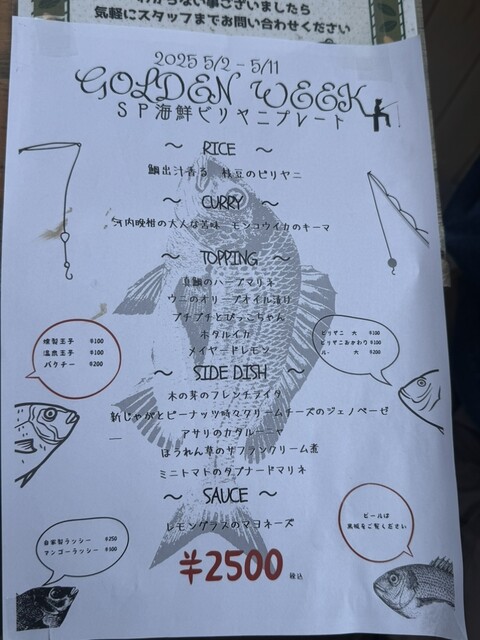 わからない事ございましたら
気軽にスタッフまでお問い合わせください
2025 5/2 - 5/11
GOLDEN WEEK
SP海鮮ビリヤニプレート
～ RICE ～
鯛出汁香る 枝豆のビリヤニ
～ CURRY ～
河内晩柑の大人な苦味 モンゴウイカのキーマ
～ TOPPING ～
真鯛のハーブマリネ
ウニのオリーブオイル漬け
プチプチとびっこちゃん
ホタルイカ
メイヤードレモン
燻製玉子 ¥100
温泉玉子 ¥100
パクチー ¥200
ビリヤニ 大 ¥100
ビリヤニおかわり ¥100
ルー 大 ¥200
～ SIDE DISH ～
木の芽のフレンチライタ
新じゃがとピーナッツ時々クリームチーズのジェノベーゼ
アサリのカタルーニャ
ほうれん草のサフランクリーム煮
ミニトマトのタプナードマリネ
～ SAUCE ～
レモングラスのマヨネーズ
自家製ラッシー ¥250
マンゴーラッシー ¥100
ビールは
黒板をご覧ください
¥2500 税込